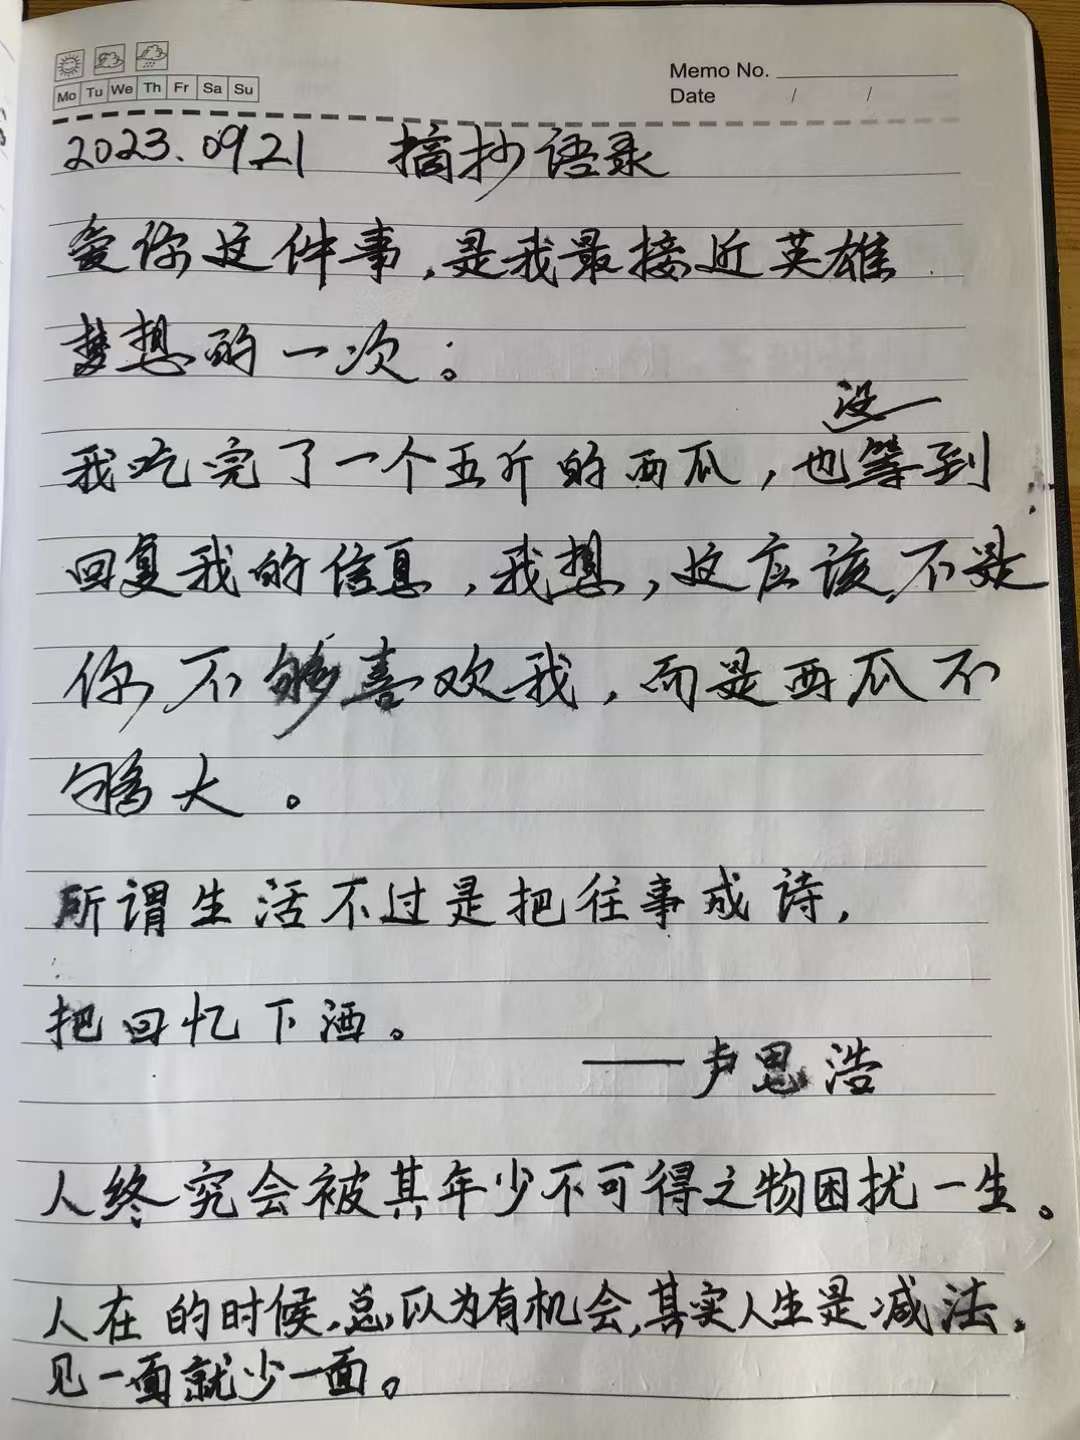 Mo Tu We Th Fr Sa Su
Memo No.
Date / /
2023.0921 摘抄语录
爱你这件事，是我最接近英雄
梦想的一次。
没
我吃完了一个五斤的西瓜，也等到
回复我的信息，我想，这应该不是
你不够喜欢我，而是西瓜不
够大。
所谓生活不过是把往事成诗，
把回忆下酒。
——卢思浩
人终究会被其年少不可得之物困扰一生。
人在的时候，总以为有机会，其实人生是减法，
见一面就少一面。